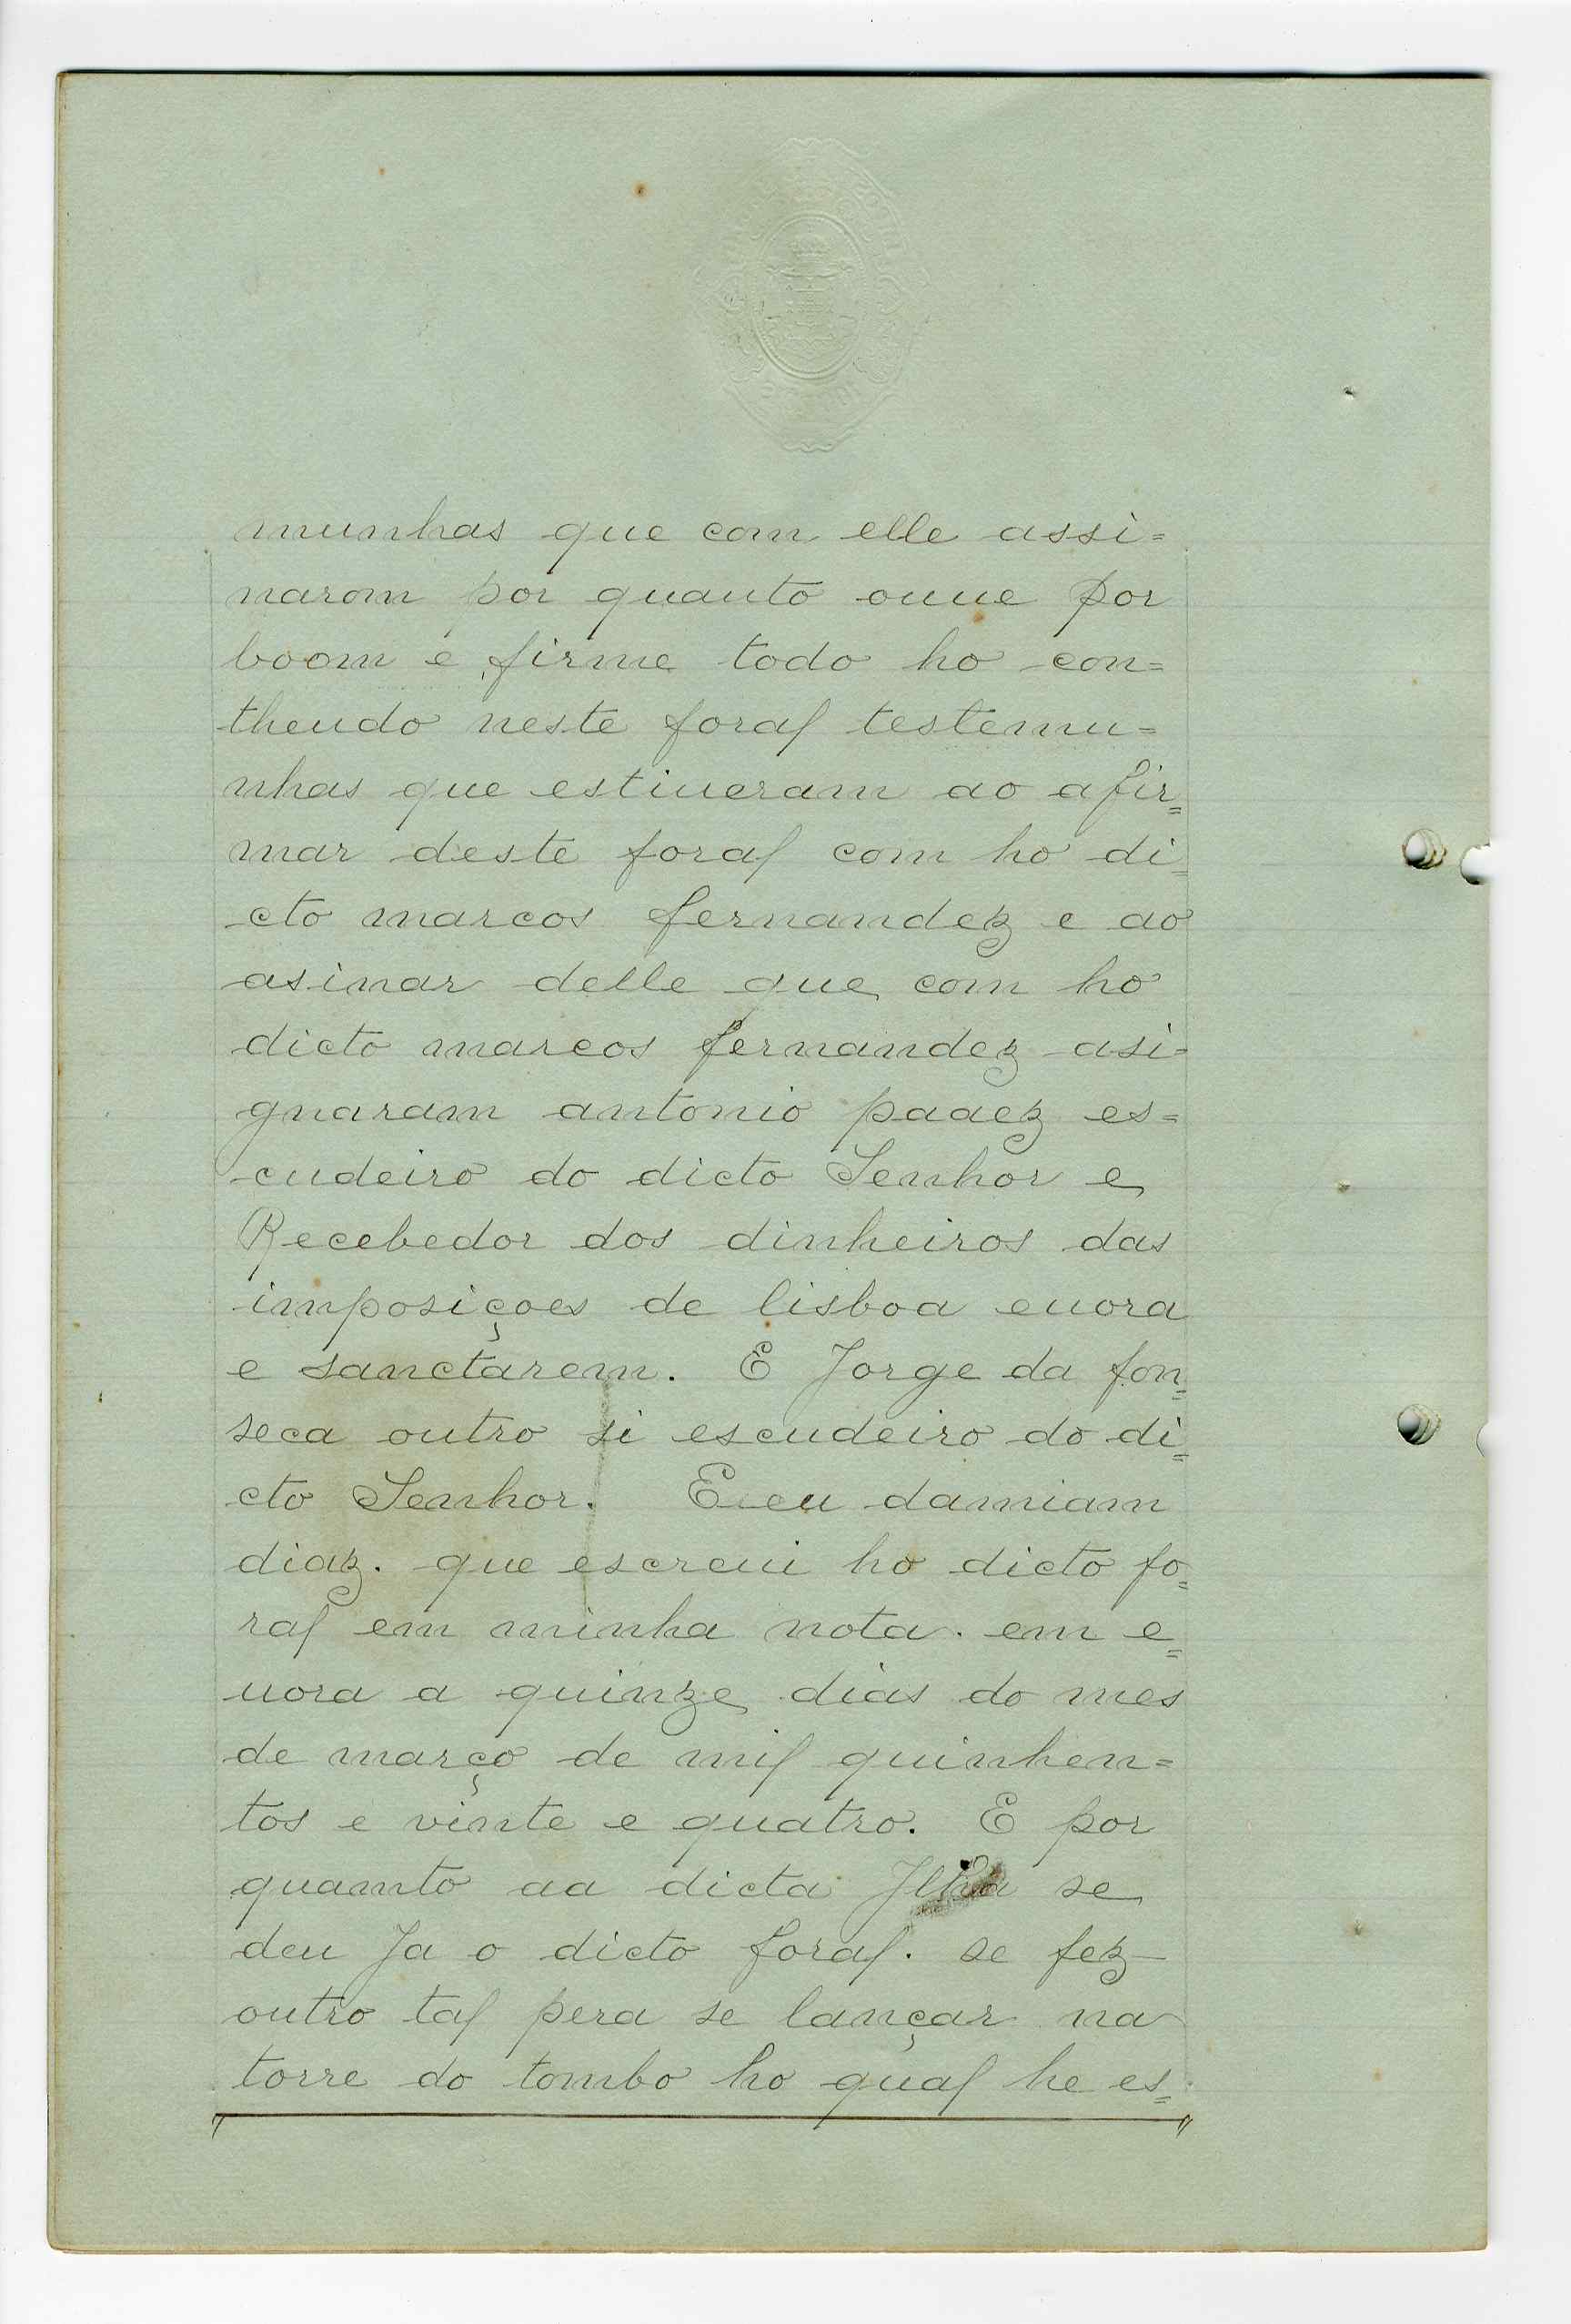 munhas que com elle assi=
narom por quanto ouue por
boom e firme todo ho con=
theudo neste foral testemu=
nhas que estiueram ao afir=
mar deste foral com ho di=
cto marcos fernandez e ao
asinar delle que com ho
dicto marcos fernandez asi=
gnaram antonio paaez es=
cudeiro do dicto Senhor e
Recebedor dos dinheiros das
imposiçoes de lisboa euora
e sanctarem. E Jorge da fon=
seca outro si escudeiro do di=
cto Senhor. E eu damiam
diaz. que escreui ho dicto fo=
ral em minha nota. em e=
uora a quinze dias do mes
de março de mil quinhen=
tos e vinte e quatro. E por
quamto aa dicta Jlha se
deu Ja o dicto foral. se fez
outro tal pera se lançar na
torre do tombo ho qual he es=